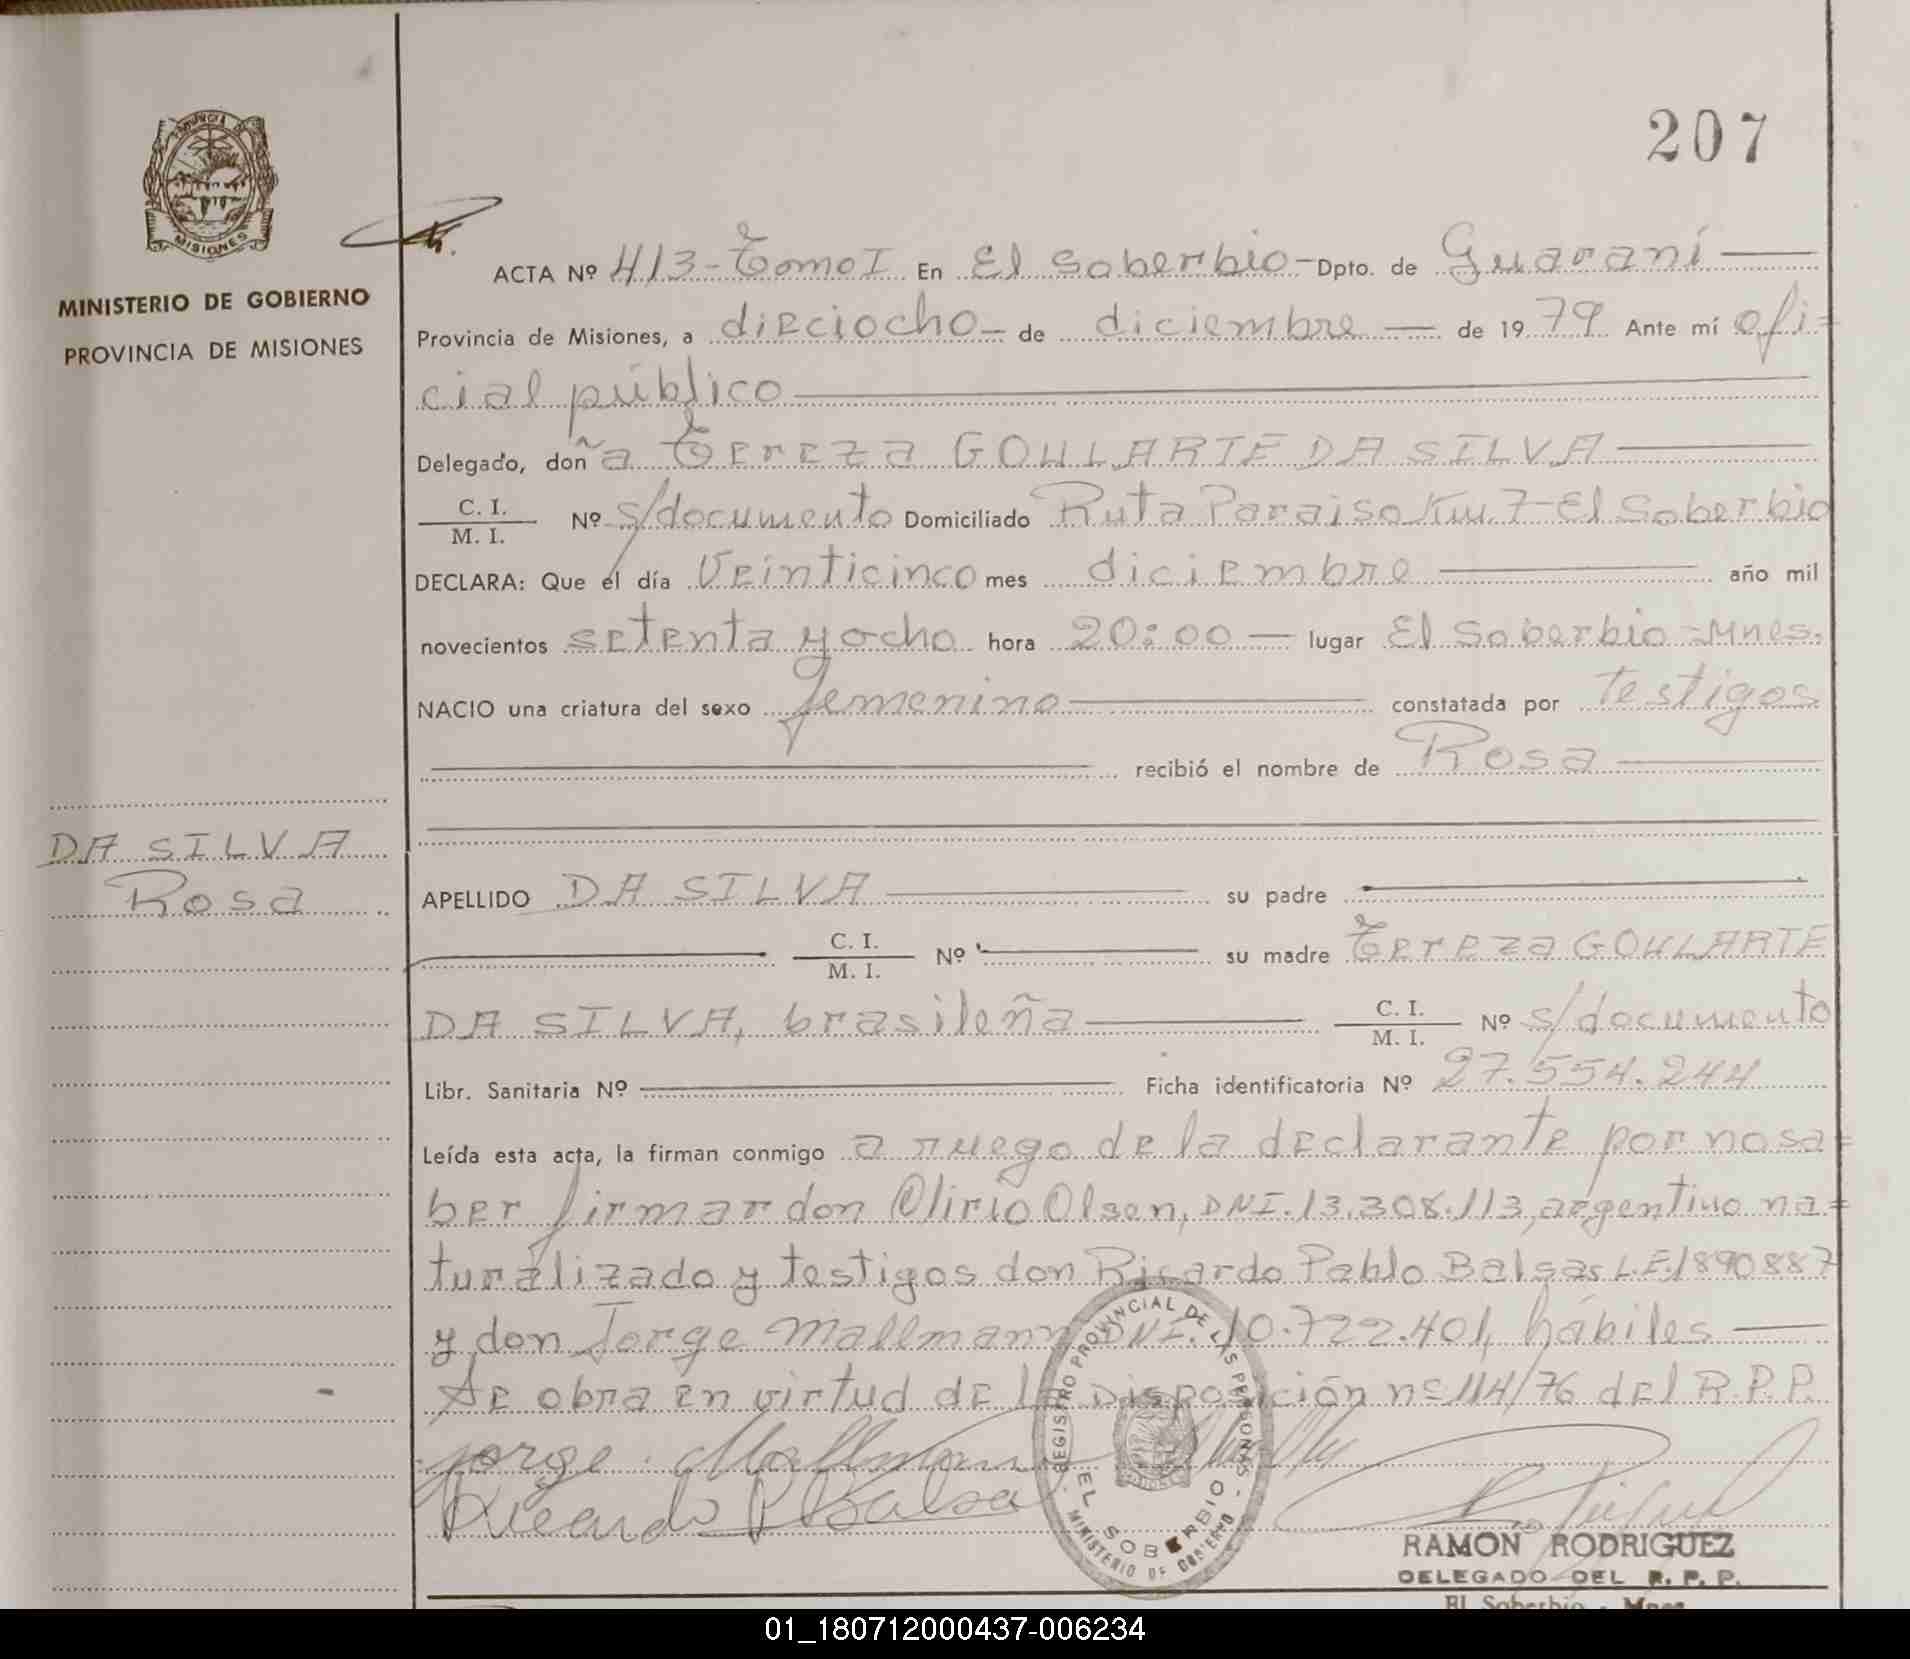 207
PROVINCIA DE
MISIONES
MINISTERIO DE GOBIERNO
PROVINCIA DE MISIONES
ACTA Nº 413-Tomo I En El Soberbio - Dpto. de Guaraní
Provincia de Misiones, a dieciocho - de diciembre - de 19 79 Ante mí ofi=
cial público
Delegado, don ña Tereza GOULARTE DA SILVA
C. I. / M. I. Nº s/documento Domiciliado Ruta Paraiso Km. 7-El Soberbio
DECLARA: Que el día Veinticinco mes diciembre año mil
novecientos setenta y ocho hora 20:00 - lugar El Soberbio-Mnes.
NACIO una criatura del sexo femenino constatada por testigos
recibió el nombre de Rosa
DA SILVA
Rosa
APELLIDO DA SILVA su padre
C. I. / M. I. Nº su madre Tereza GOULARTE
DA SILVA, brasileña C. I. / M. I. Nº s/documento
Libr. Sanitaria Nº Ficha identificatoria Nº 27.554.244
Leída esta acta, la firman conmigo a ruego de la declarante por no sa=
ber firmar don Olirio Olsen, DNI. 13.308.113, argentino na=
turalizado y testigos don Ricardo Pablo Balsas L.E. 1890887
y don Jorge Mallmann DNI. 10.722.401, hábiles
Se obra en virtud de la Disposición nº 114/76 del R.P.P.
Jorge Mallmann
Ricardo P Balsa
REGISTRO PROVINCIAL DE LAS PERSONAS
EL SOBERBIO
MINISTERIO DE GOBIERNO
RAMON RODRIGUEZ
DELEGADO DEL R. P. P.
El Soberbio - Mnes
01_180712000437-006234